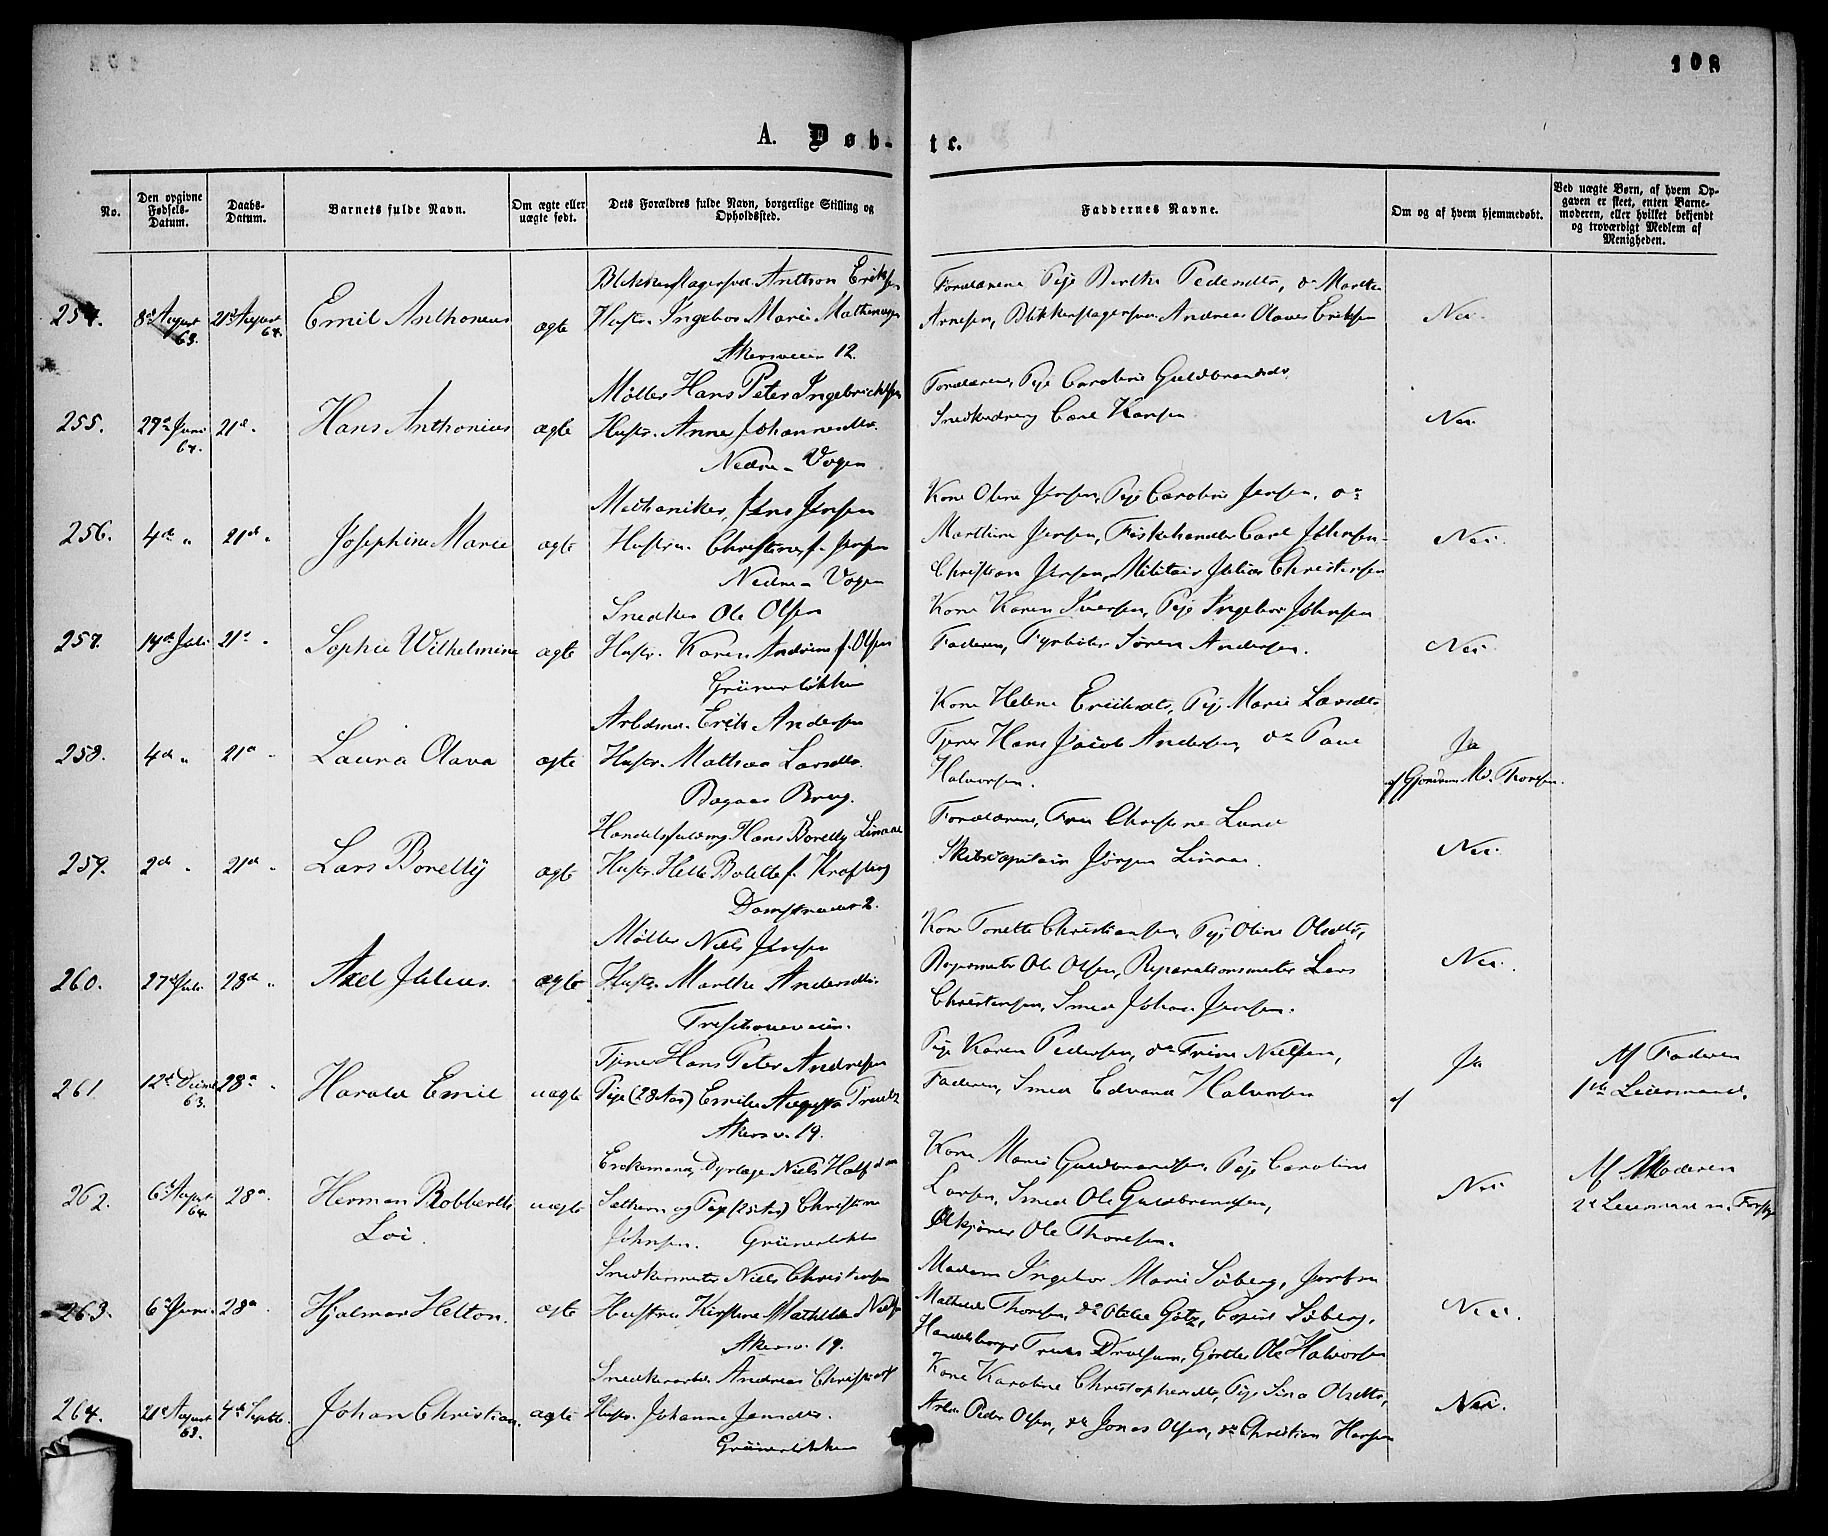 108
A. Døb-
te.
No.
Den opgivne Fødsels-Datum.
Daabs-Datum.
Barnets fulde Navn.
Om ægte eller uægte født.
Dets Forældres fulde Navn, borgerlige Stilling og Opholdssted.
Faddernes Navne.
Om og af hvem hjemmedøbt.
Ved uægte Børn, af hvem Opgaven er skeet, enten Barnemoderen, eller hvilket bekjendt og troværdigt Medlem af Menigheden.
254. 8de August 63. 21de August 64. Emil Anthonius ægte
Anthon Eriksen
Hustr. Ingebor Marie
Akersveien 12.
Forældrene Pige Berthe Pedersdtr, do Marthe
Arnesen, Blikkenslagersvend Andreas Olaves Eriksen
Nei.
255. 29de Juni 64. 21de Hans Anthonius ægte
Møller Hans Peter Ingebrichtsen
Hustr. Anne Johannesdtr.
Nedre Vogen
Forældrene, Pige Caroline Guldbrandsdr.
Snedkerdreng Carl Hansen.
Nei.
256. 4de " 21de " Josephine Marie ægte
Mechaniker, Jens Jensen
Hustru Christine f. Jensen
Nedre Vogen
Kone Oline Jensen, Pige Caroline Jensen, do
Marthine Jensen, Fiskehandler Carl Johnsen
Christian Jensen, Militair Julius Christensen
Nei.
257. 14de Juli 21de " Sophie Wilhelmine ægte
Snedker Ole Olsen
Hustr. Karen Andrine f. Olsen
Grünerløkken
Kone Karen Iversen, Pige Ingebor Johnsen
Faderen, Fyrbøder Søren Andersen.
Nei.
258. 4de " 21de " Laura Olava ægte
Arbdsmd. Erik Andersen
Hustr. Mathea Larsdtr.
Bagaas Brug.
Kone Helene Eriksdtr, Pige Marie Larsdtr
Tjener Hans Jacob Andersen, do Paul
Halvorsen.
Ja
af Gjordem. Md. Thoresen.
259. 2de " 21de " Lars Borelly ægte
Hans Borelly Linaae
Hustr.
Damstrædet 2.
Forældrene, Fru Christine Lund
Skibscapitain Jørgen Linaae.
Nei.
260. 27de Juli 28de " Axel Julius. ægte
Møller Niels Jensen
Hustr. Marthe Andersdtr.
Kone Tonette Christiansen, Pige Oline Olsdtr,
Ole Olsen, Reparationsmester Lars
Christensen, Smed Johan Jensen.
Nei.
261. 12te 63. 28de " Harald Emil uægte
Tjener Hans Peter Andresen
Pige (28 Aar) Emilie Augusta
Akersv. 19.
Pige Karen Pedersen, do Trine Nielsen,
Faderen, Smed Edvard Halvorsen
Ja
af
Af Faderen
1ste Leiermaal.
262. 6te August 64. 28de Herman Robberth Loi. uægte
Enkemand, Dyrlæge Niels Halfdan
Sathern og Pige (25 Aar) Christine
Johnsen. Grünerløkken
Kone Marie Guldbrandsen, Pige Caroline
Larsen, Smed Ole Guldbrandsen,
Ole Thoresen.
Nei
Af Moderen
2de Leiermaal
263. 6te Juni 28de Hjalmar Helton. ægte
Snedkermester Niels Christensen
Hustru Kirstine Mathilde
Akersv. 19.
Madam Ingebor Marie Søberg, Jomfru
Mathilde Thoresen, do Otilie Götz, Søberg,
Handelsborger, Gørtler Ole Halvorsen
Nei.
264. 21de August 63. 4de Septbr. Johan Christian. ægte
Snedkerarb. Andreas
Hustr. Johanne Jensdtr.
Grünerløkken
Kone Karoline Christophersdtr, Pige Sina Olsdtr,
Arbm. Peder Olsen, do Jonas Olsen, do Christian Hansen
Nei.